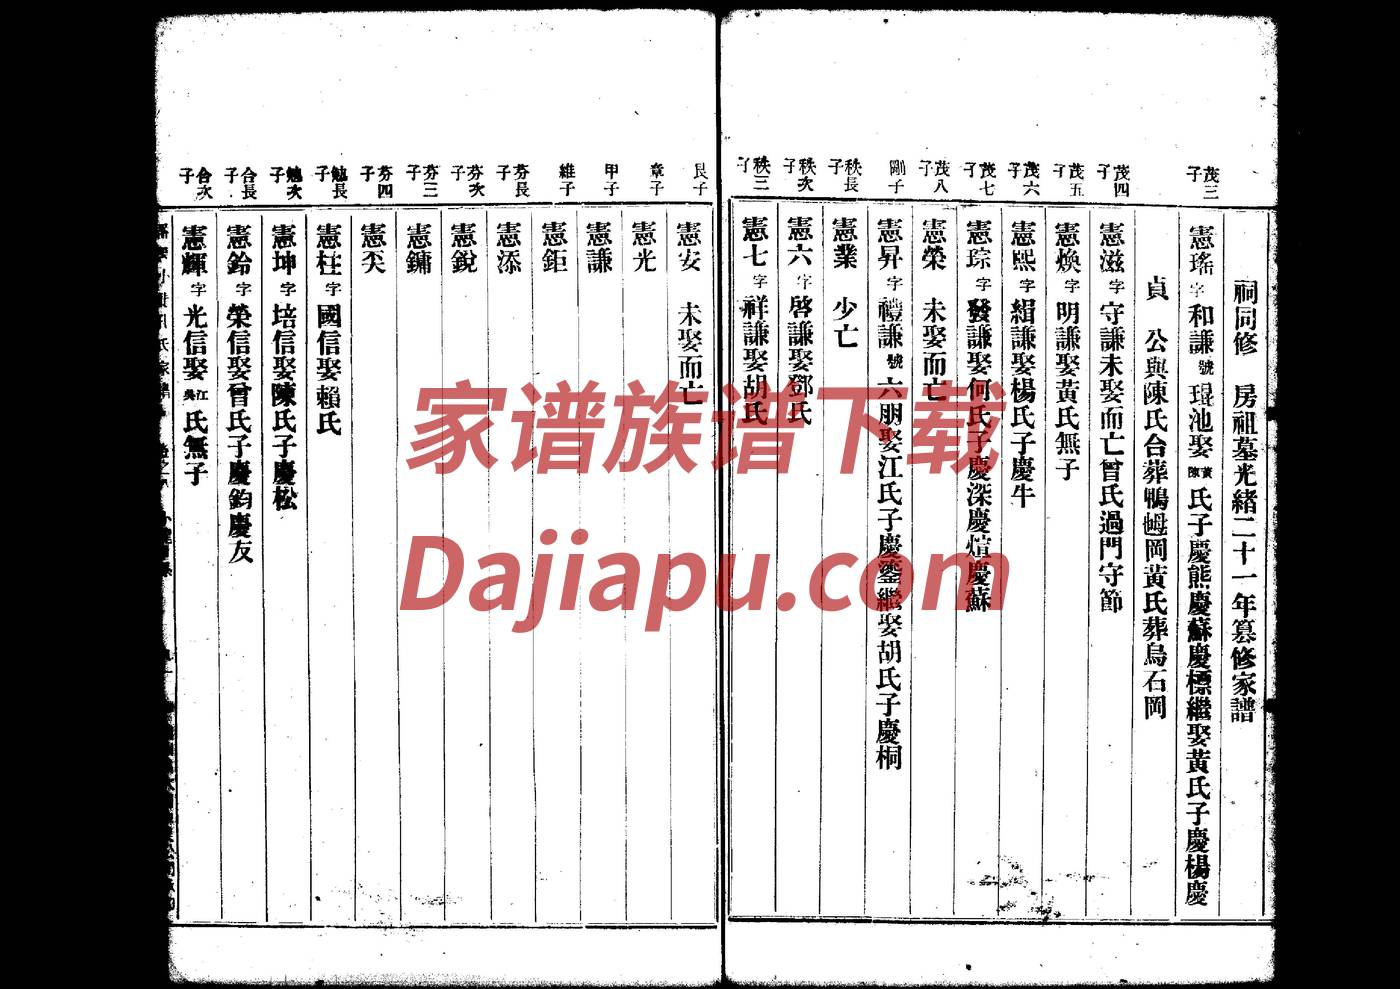 祠同修　房祖墓光緒二十一年纂修家譜
茂三子
憲瑤字和謙號琨池娶黃陳氏子慶熊慶蘇慶標繼娶黃氏子慶楊慶
貞　公與陳氏台葬鴨𡜵岡黃氏葬烏石岡
茂四子
憲滋字守謙未娶而亡曾氏過門守節
茂五子
憲煥字明謙娶黃氏無子
茂六子
憲熙字緝謙娶楊氏子慶牛
茂七子
憲琮字發謙娶何氏子慶深慶煊慶蘇
茂八子
憲榮　未娶而亡
剛子
憲昇字禮謙號六朋娶江氏子慶鎏繼娶胡氏子慶桐
秩長子
憲業　少亡
秩次子
憲六字啓謙娶鄧氏
秩三子
憲七字祥謙娶胡氏
艮子
憲安　未娶而亡
章子
憲光
甲子
憲謙
維子
憲鉅
芬長子
憲添
芬次子
憲銳
芬三子
憲鏞
芬四子
憲尖
勉長子
憲柱字國信娶賴氏
勉次子
憲坤字培信娶陳氏子慶松
合長子
憲鈴字榮信娶曾氏子慶鈞慶友
合次子
憲輝字光信娶江吳氏無子
家谱族谱下载
Dajiapu.com